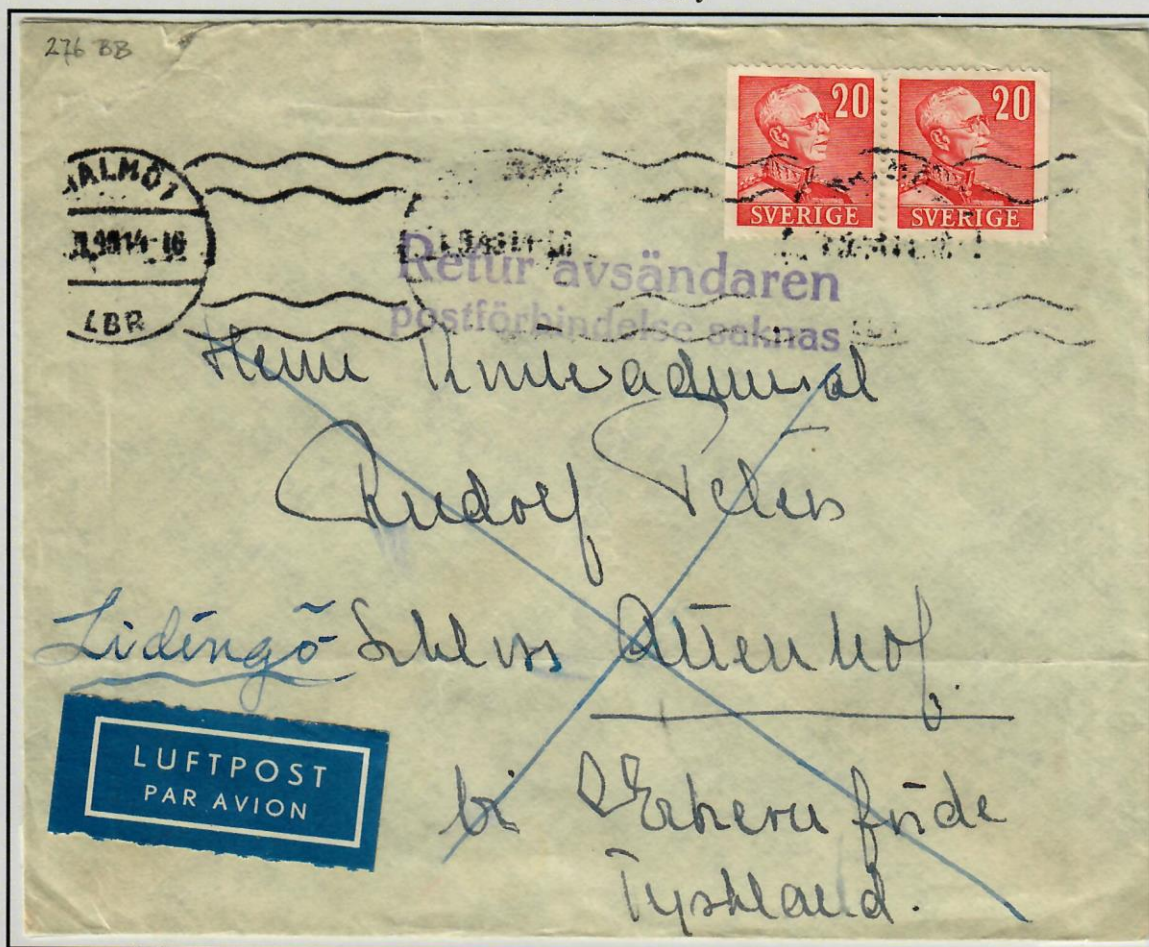 276 BB
20 20
SVERIGE SVERIGE
MALMÖ 1
14-16
LBR
Retur avsändaren
postförbindelse saknas
Herrn Konteradmiral
Rudolf Peters
Lidingö Schloss Altenhof
bei Eckernförde
Tyskland.
LUFTPOST
PAR AVION